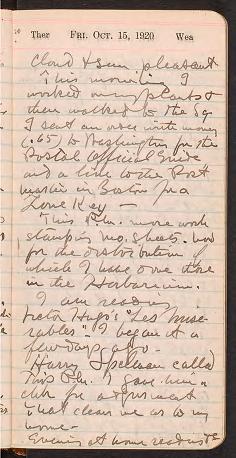 Ther FRI. OCT. 15, 1920 Wea
Cloud & sun pleasant
This morning I
worked on my plants &
then walked to the Sq
I sent an order with money
(.65) to Washington for the
Postal Official Guide
and a line to the Post
master in Boston for a
Zone Key —
This P.M. more work
stamping mo. sheets.
for the distribution of
which I have one those
in the Herbarium.
I am reading
Victor Hugo's "Les Mise-
rables". I began it a
few days ago.
Harry Spelman called
this P.M. I gave him a
for adjustment
that clears me as to my
home—
Evening at home reading